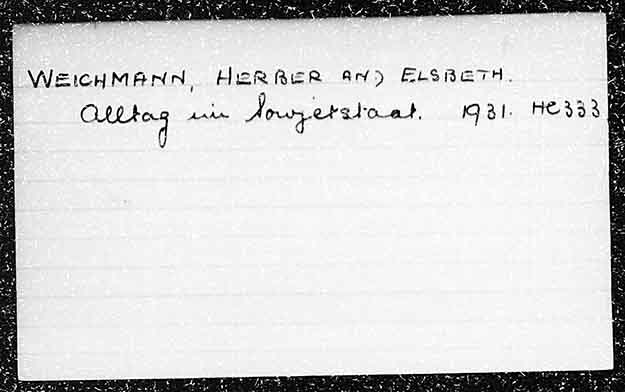 WEICHMANN, HERBER AND ELSBETH.
Alltag im Sowjetstaat. 1931. HC333